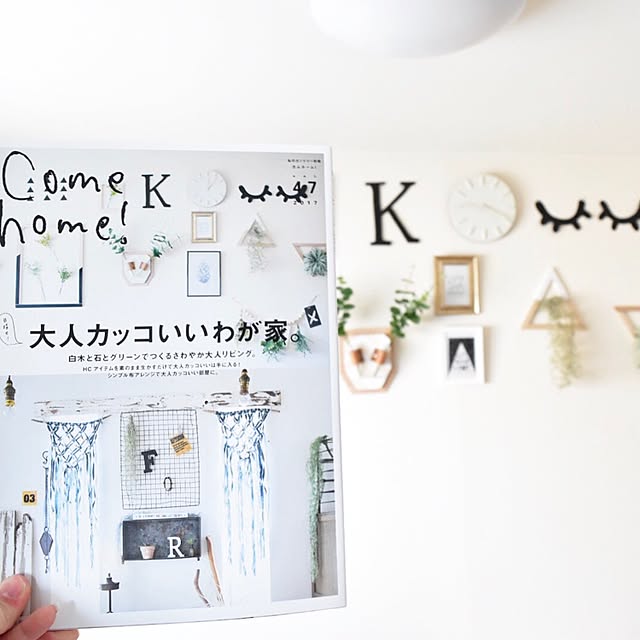 Come
home!
K
47
2017
大人カッコいいわが家。
白木と石とグリーンでつくるさわやか大人リビング。
HCアイテムを素のまま生かすだけで大人カッコいいは手に入る!
シンプル布アレンジで大人カッコいい部屋に。
F
O
03
R
K